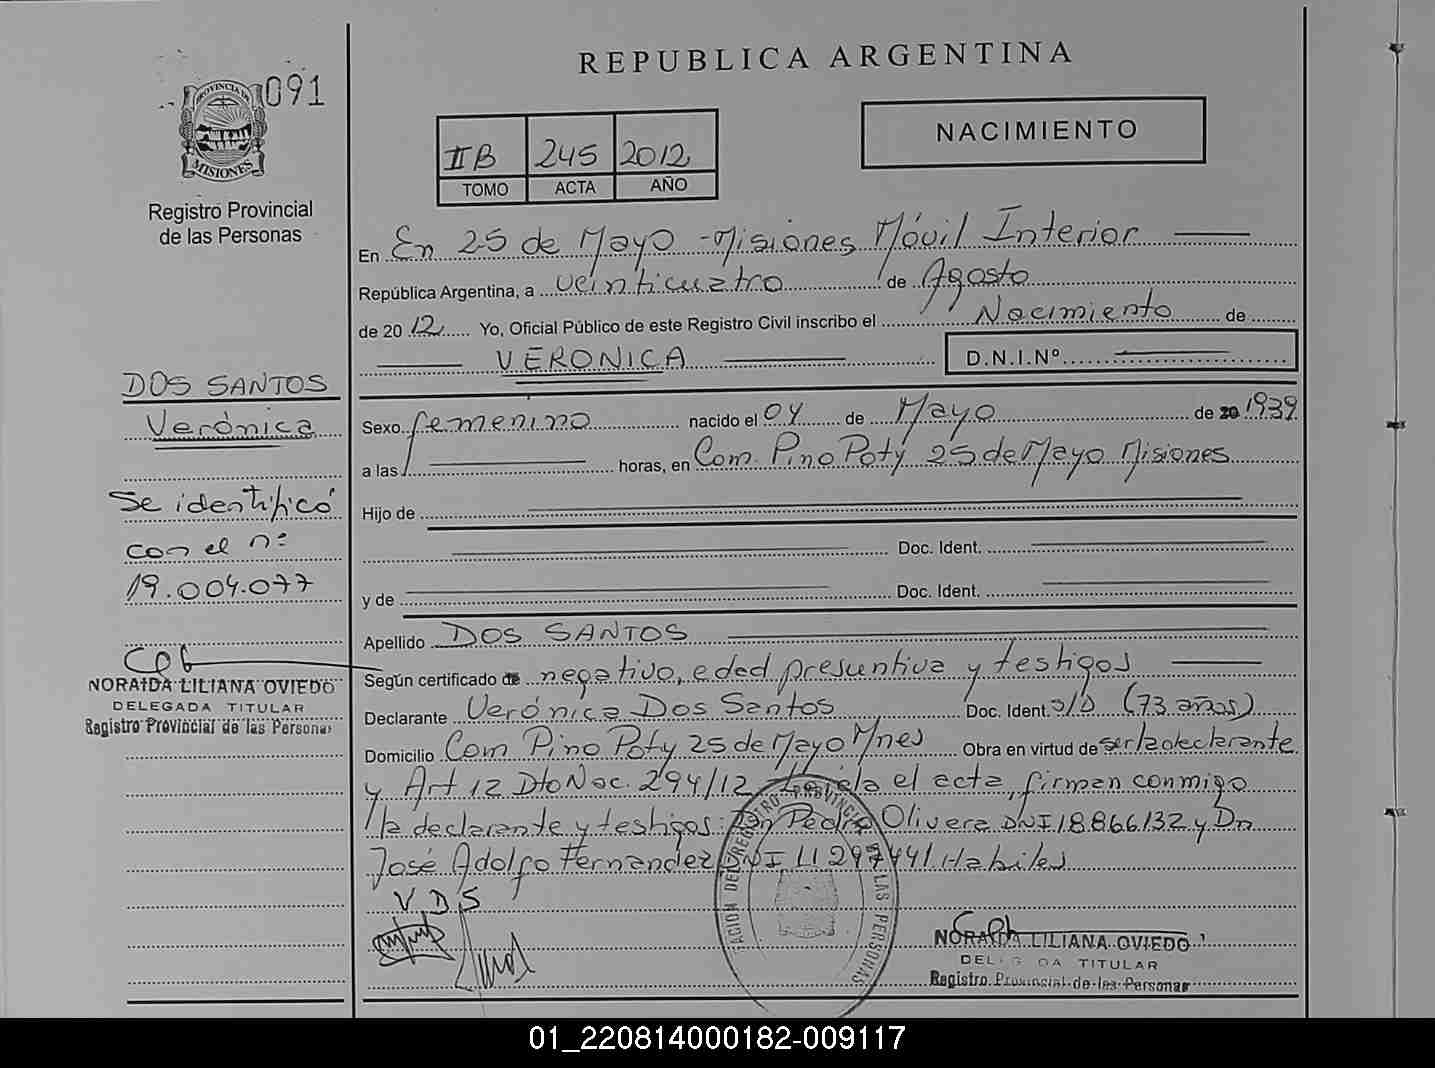 REPUBLICA ARGENTINA
091
PROVINCIA DE
MISIONES
Registro Provincial
de las Personas
IIB 245 2012
TOMO ACTA AÑO
NACIMIENTO
En En 25 de Mayo - Misiones Móvil Interior
República Argentina, a veinticuatro de Agosto
de 2012 Yo, Oficial Público de este Registro Civil inscribo el Nacimiento de
VERONICA D.N.I.Nº
DOS SANTOS
Verónica
Se identificó
con el nº
19.004.077
NORAIDA LILIANA OVIEDO
DELEGADA TITULAR
Registro Provincial de las Personas
Sexo femenino nacido el 04 de Mayo de 20 1939
a las horas, en Com. Pino Poty 25 de Mayo Misiones
Hijo de
Doc. Ident.
y de Doc. Ident.
Apellido DOS SANTOS
Según certificado de negativo, edad presuntiva y testigos
Declarante Verónica Dos Santos Doc. Ident. s/D (73 años)
Domicilio Com Pino Poty 25 de Mayo Mnes Obra en virtud de ser la declarante
y Art 12 Dto Nac. 294/12 Leída el acta, firman conmigo
la declarante y testigos: Don Pedro Olivera DNI 18866132 y Dn
José Adolfo Fernandez DNI 11297441 Habiles
V D S
REGISTRO PROVINCIAL DE LAS PERSONAS
NORAIDA LILIANA OVIEDO
DELEGADA TITULAR
Registro Provincial de las Personas
01_220814000182-009117